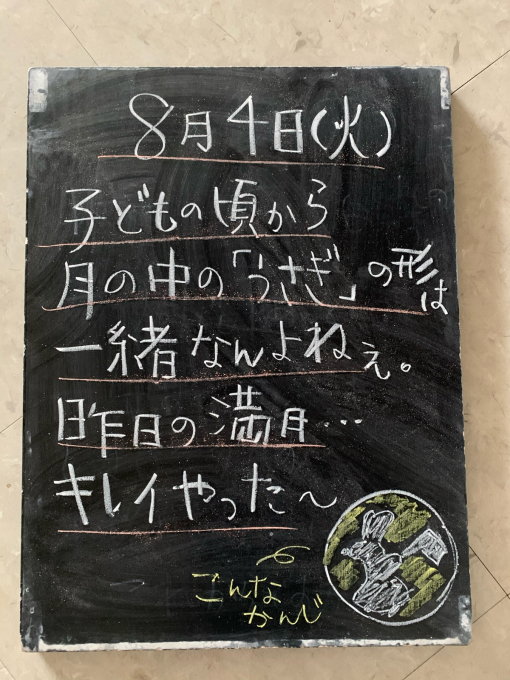 8月4日(火)
子どもの頃から
月の中の「うさぎ」の形は
一緒なんよねぇ。
昨日の満月…
キレイやった〜
こんな
かんじ